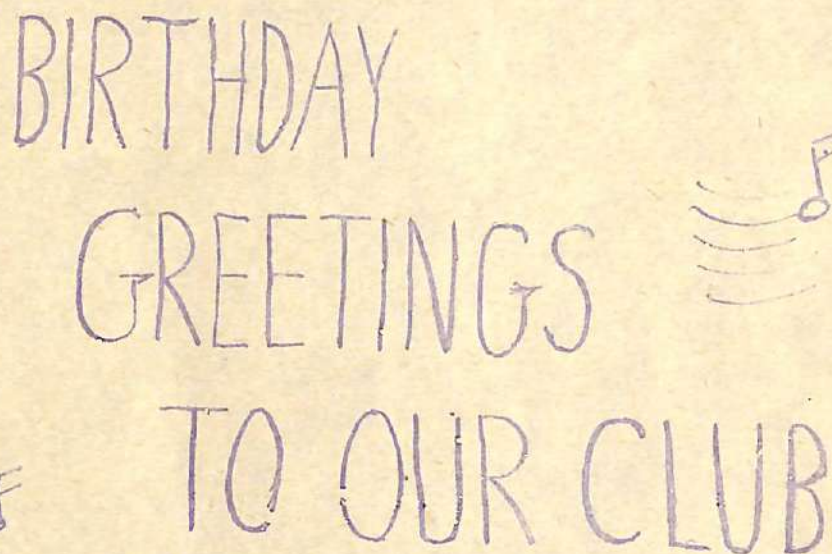 BIRTHDAY
GREETINGS
TO OUR CLUB